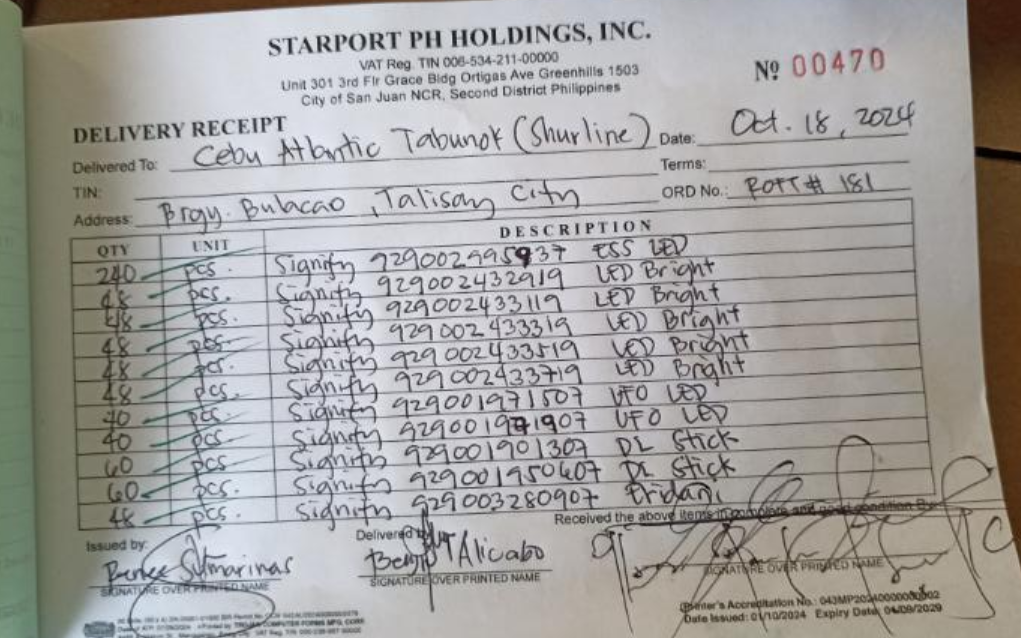 STARPORT PH HOLDINGS, INC.
VAT Reg. TIN 006-534-211-00000
Unit 301 3rd Flr Grace Bldg Ortigas Ave Greenhills 1503
City of San Juan NCR, Second District Philippines
Nº 00470
DELIVERY RECEIPT
Delivered To: Cebu Atlantic Tabunok (Shurline) Date: Oct. 18, 2024
TIN: Terms:
Address: Brgy. Bulacao, Talisay City ORD No.: # 181
QTY UNIT DESCRIPTION
240 pcs. Signify 929002995937 ESS LED
48 pcs. Signify 929002432919 LED Bright
48 pcs. Signify 929002433119 LED Bright
48 pcs. Signify 929002433319 LED Bright
48 pcs. Signify 929002433519 LED Bright
48 pcs. Signify 929002433719 LED Bright
40 pcs. Signify 929001971507 UFO LED
40 pcs. Signify 929001971907 UFO LED
60 pcs Signify 929001901307 DL Stick
60 pcs. Signify 929001950607 DL Stick
48 pcs. Signify 929003280907 Eridani
Received the above items in complete and good condition By
Issued by: Delivered by
Alicabo
SIGNATURE OVER PRINTED NAME SIGNATURE OVER PRINTED NAME SIGNATURE OVER PRINTED NAME
Printer's Accreditation No.:
Date Issued: 01/10/2024 Expiry Date: 04/09/2029